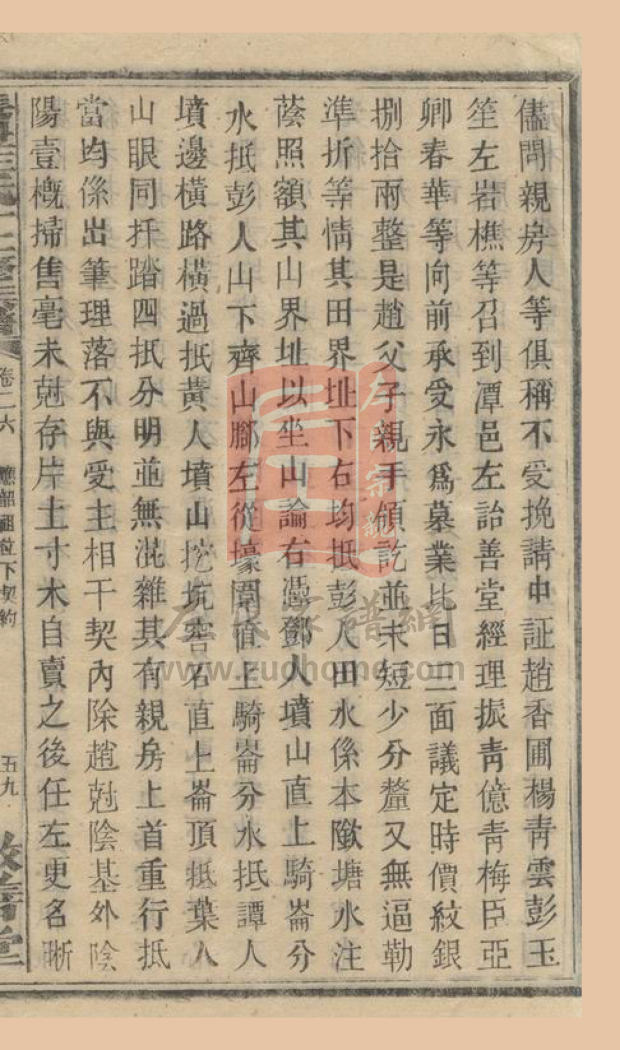 儘問親房人等俱稱不受挽請中証趙香圃楊靑雲彭玉
笙左岩樵等召到潭邑左詒善堂經理振靑億靑梅臣亞
卿春華等向前承受永爲墓業比日三面議定時價紋銀
捌拾兩整是趙父子親手領訖並未短少分釐又無逼勒
準折等情其田界址下右均抵彭人田水係本墩塘水注
蔭照額其山界址以坐山論右憑鄧人墳山直上騎崙分
水抵彭人山下齊山腳左從壕圍直上騎崙分水抵譚人
墳邊橫路橫過抵黃人墳山挖坑窖石直上崙頂抵葉人
山眼同扦踏四抵分明並無混雜其有親房上首重行抵
當均係出筆理落不與受主相干契內除趙尅陰基外陰
陽壹槪掃售毫未尅存片土寸木自賣之後任左更名晰
卷二六
下契約
五九
左氏家譜網
www.zuohome.com